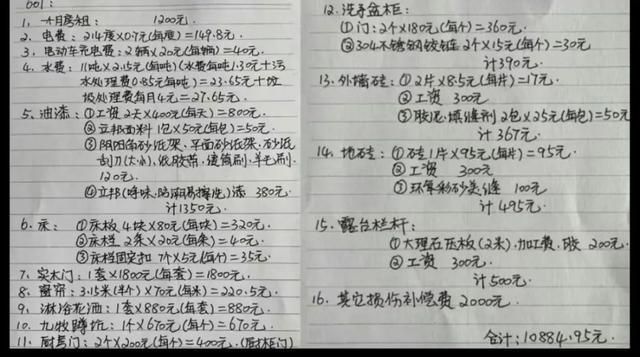 601:
1. 一个月房租: 1200元.
2. 电费: 214度×0.7元(每度)=149.8元.
3. 电动车充电费: 2辆×20元(每辆)=40元.
4. 水费: 11吨×2.15元(每吨)(水费每吨1.30元+污
水处理费0.85元每吨)=23.65元+垃
圾处理费每月4元=27.65元.
5. 油漆: ①工资2天×400元(每天)=800元.
②立邦面料1包×50元(每包)=50元.
③阴阳角砂纸架、平面砂纸架、砂纸
刮刀(大小)、纸胶带、滚筒刷、羊毛刷.
120元.
④立邦(呼吸 防潮易擦洗)漆 380元.
计1350元.
6. 床: ①床板4块×80元(每块)=320元.
②床档2条×20元(每条)=40元.
③床档固定扣 7个×5元(每个)=35元.
7. 实木门: 1套×1800元(每套)=1800元.
8. 窗帘: 3.15米(半个)×70元(每米)=220.5元.
9. 淋浴花洒: 1套×880元(每套)=880元.
10. 九牧蹲坑: 1个×670元(每个)=670元.
11. 厨房门: 2个×200元(每个)=400元. (厨柜门)
12. 洗手盆柜:
①门: 2个×180元(每个)=360元
②304不锈钢铰链 2个×15元(每个)=30元
计390元.
13. 外墙砖: ①2片×8.5元(每片)=17元.
②工资 300元
③胶泥.填缝剂 2包×25元(每包)=50元
计367元.
14. 地砖: ①砖1片×95元(每片)=95元.
②工资 300元
③环氧彩砂美缝 100元
计495元.
15. 露台栏杆:
①大理石压板(2米).加工费.胶 200元.
②工资 300元.
计500元.
16. 其它损伤补偿费 2000元.
合计: 10884.95元.